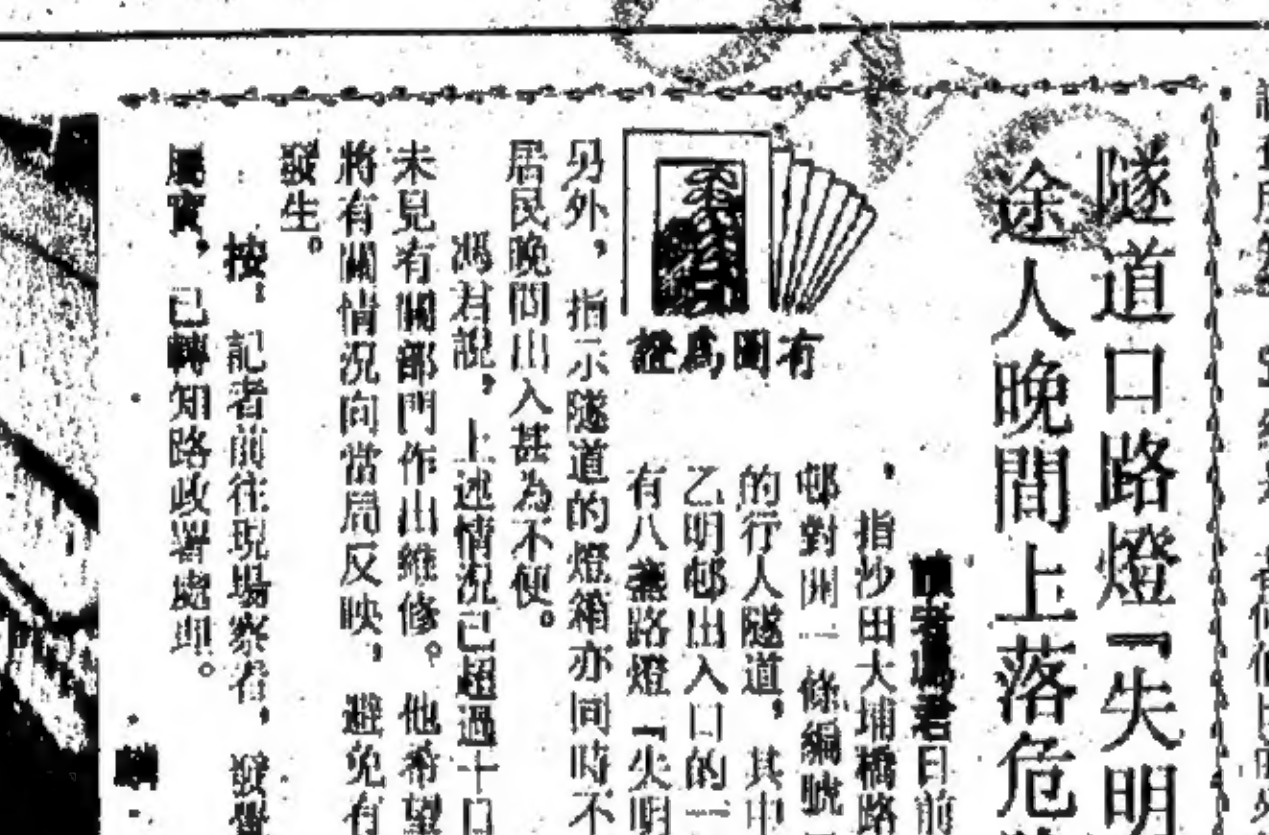 隧道口路燈『失明
途人晚間上落危
讀者馮君日前
，指沙田大埔橋路
邨對開一條編號
的行人隧道，其中
乙明邨出入口的一
有八盞路燈『失明
有圖為證
另外，指示隧道的燈箱亦同時不
居民晚間出入甚為不便。
馮君說，上述情況已超過十日
未見有關部門作出維修。他希望
將有關情況向當局反映，避免有
發生。
按：記者前往現場察看，發覺
屬實，已轉知路政署處理。